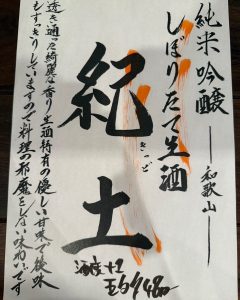 純米吟醸 ― 和歌山 ―
しぼりたて生酒
紀土
きっど
透き通った綺麗な香り生酒特有の優しい甘味で後味
もすっきりしていますので料理の邪魔をしない味わいです
酒度+2